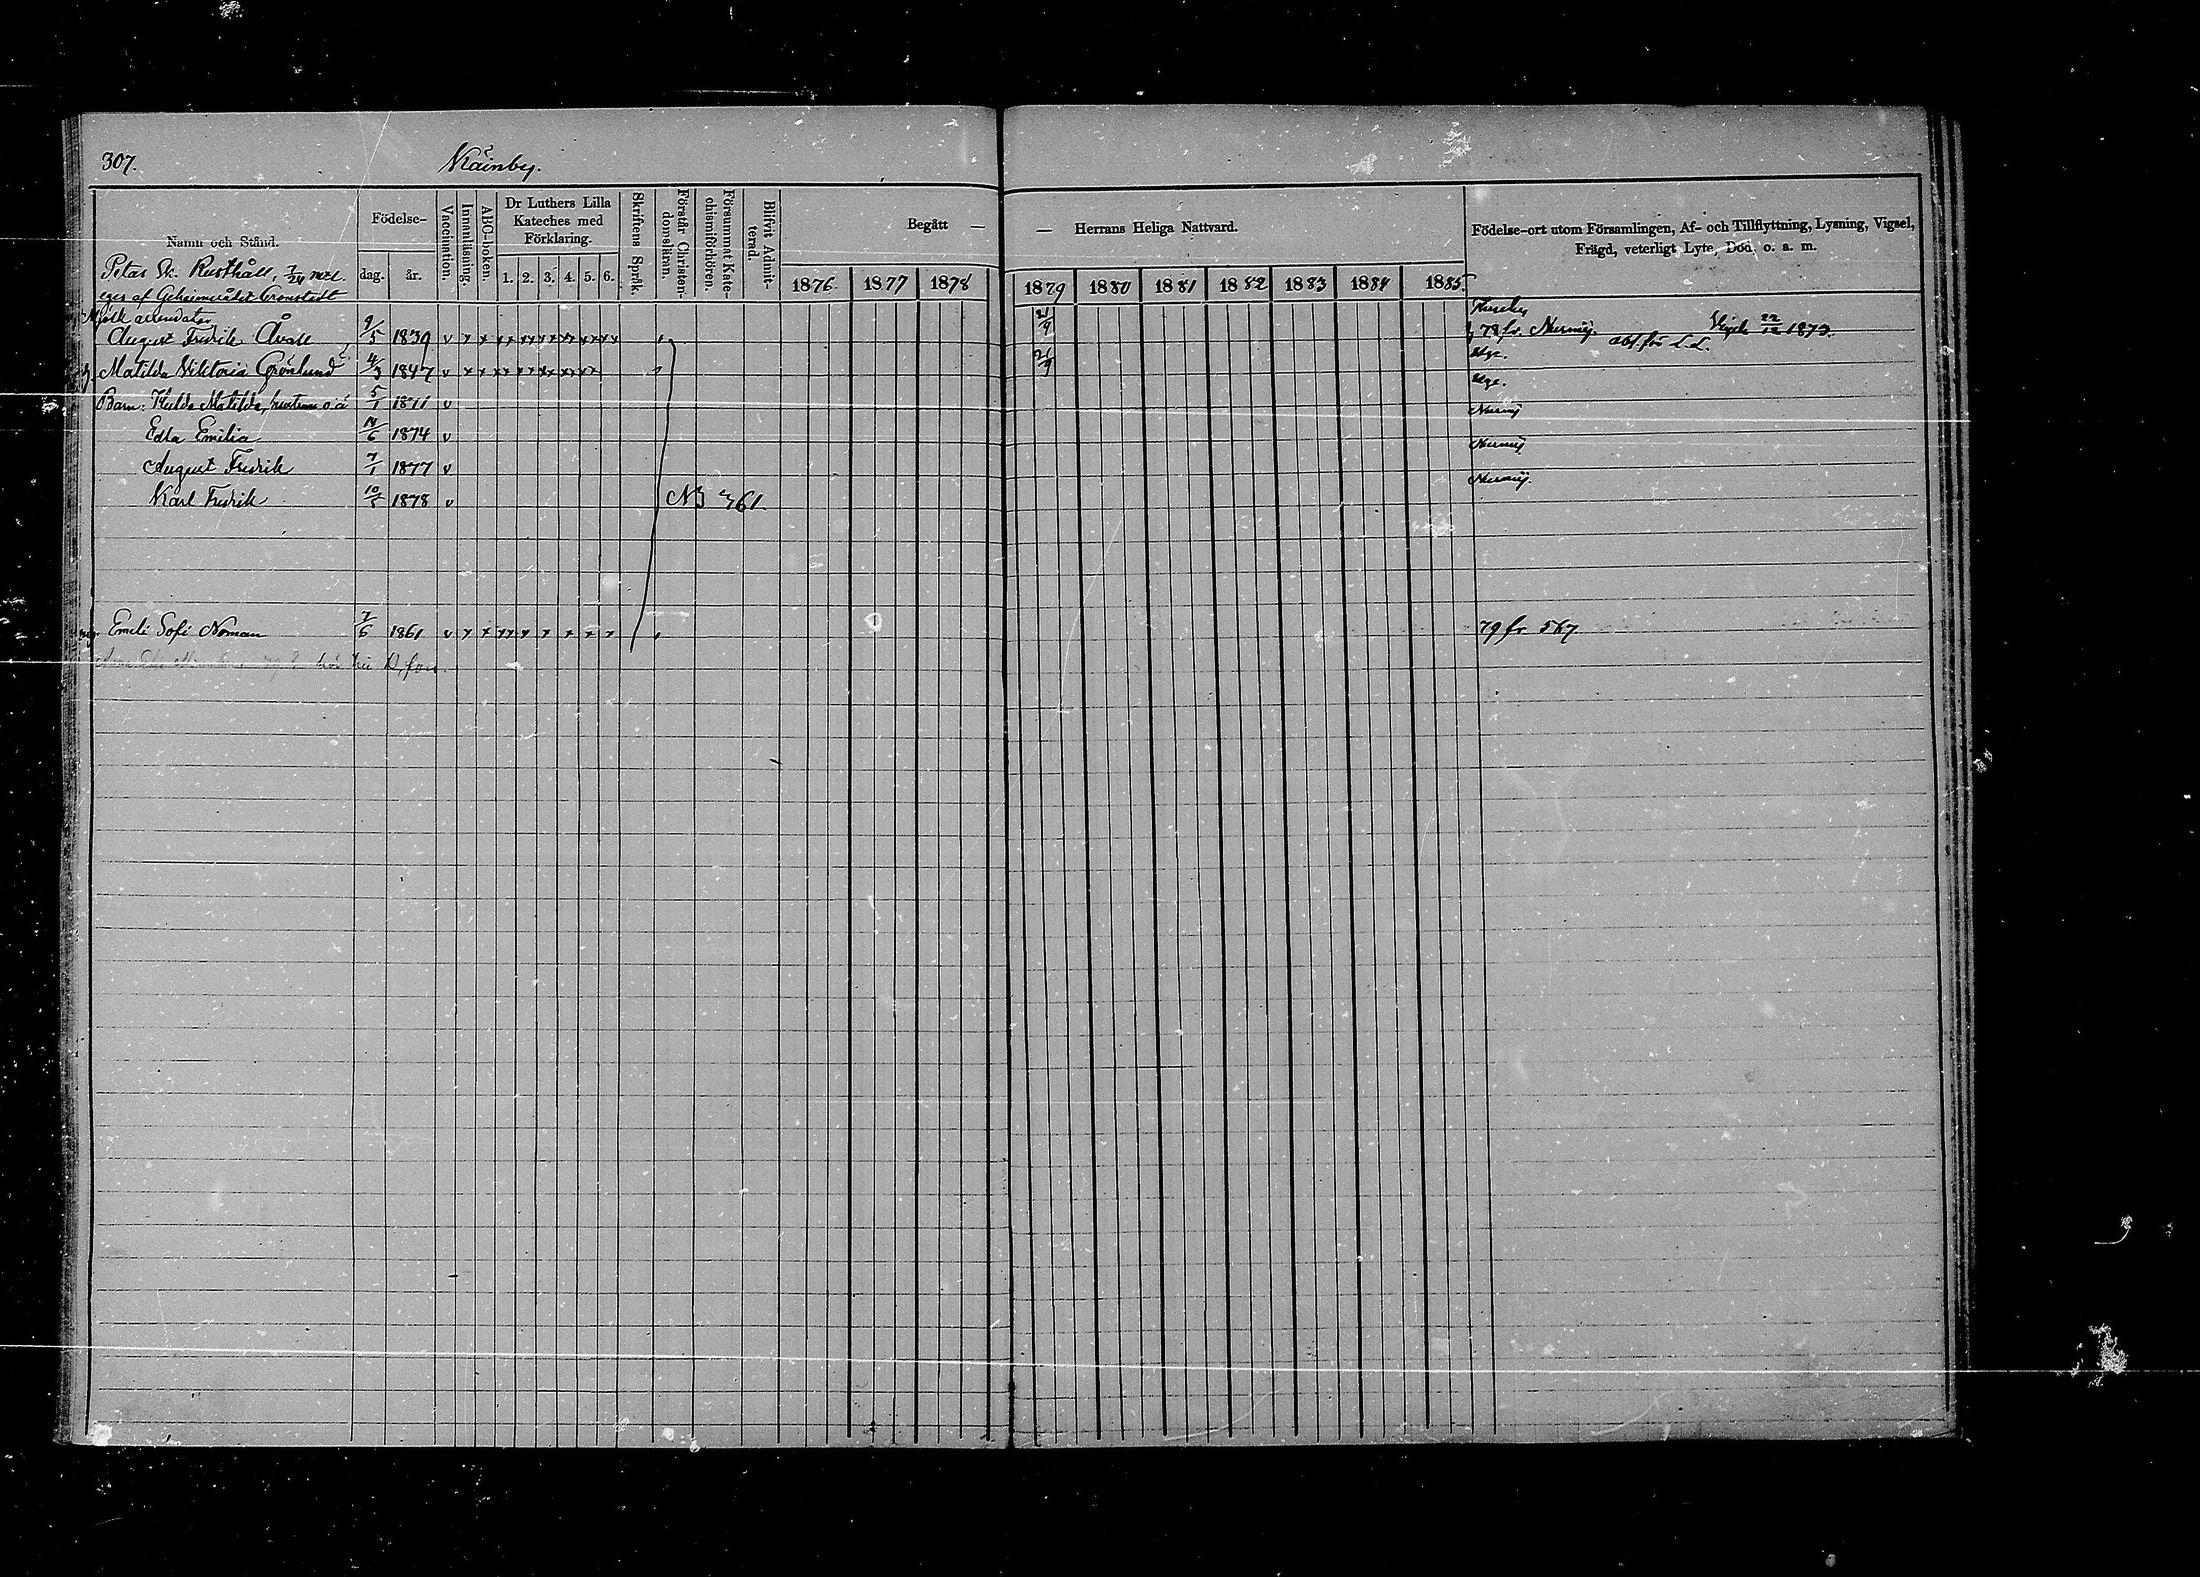 307.
Käinby.
Namn och Stånd.
Födelse-
dag.
år.
Vaccination.
Innanläsning.
ABC-boken.
Dr Luthers Lilla
Kateches med
Förklaring.
1. 2. 3. 4. 5. 6.
Skriftens Språk.
Förstår Christen-
domsläran.
Försummat Kate-
chismiförhören.
Blifvit Admit-
terad.
Begått —
— Herrans Heliga Nattvard.
Födelse-ort utom Församlingen, Af- och Tillflyttning, Lysning, Vigsel,
Frägd, veterligt Lyte, Död, o. a. m.
1876 1877 1878 1879 1880 1881 1882 1883 1884 1885.
Petas Sk. Rusthåll, 7/24 mtl.
eges af Geheimerådet Cronstedt
Mjölk arrendator
August Fredrik Åvall 9/5 1839 v x x xx xx xx xx xx xx 21/9 78 fr. Nurmij. Vigde 22/12 1873.
abs. för L. L.
h. Matilda Viktoria Grönlund 4/3 1847 v x x xx xx xx xx xx 21/9
Barn: Hulda Matilda, 5/1 1871 v
Edla Emilia 14/6 1874 v Nurmij
August Fredrik 7/1 1877 v Nurmij
Karl Fredrik 10/5 1878 v N3 761. Nurmij.
Emeli Sofi Noman 7/6 1861 v x x xx x x x x x 79 fr. 567